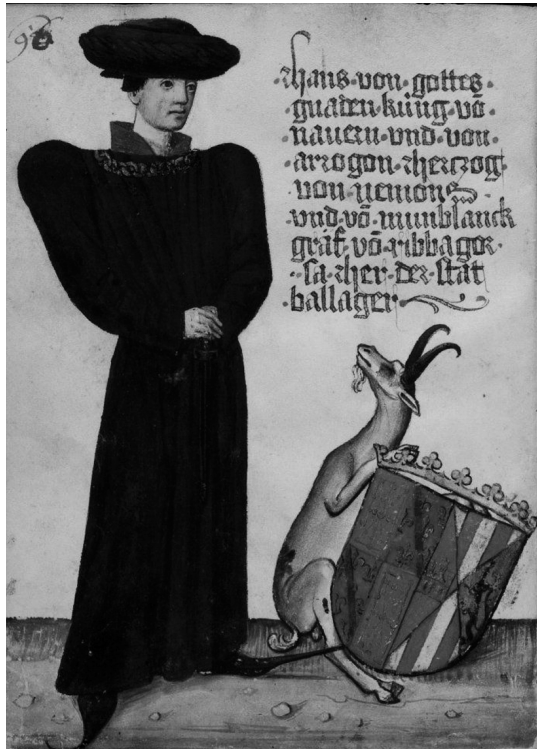 ·Jhans·von·gottes·
gnaden·küng·vō·
nauern·vnd·von·
·arrogon·Jhertzog·
von·nemons
vnd·vō·munblanck
gräf·vō·ribbagor·
·sa·Jher·der·stat
ballager·